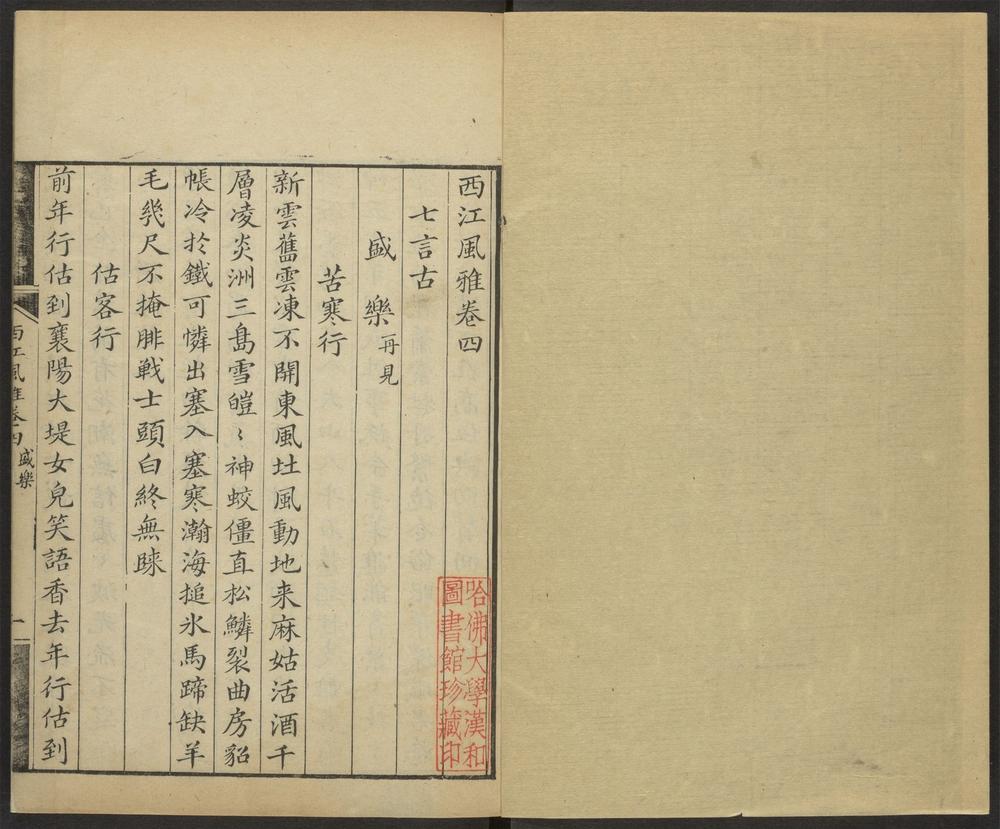 西江風雅卷四
七言古
盛樂再見
苦寒行
新雲舊雲凍不開東風𡈽風動地来麻姑活酒千
層凌炎洲三島雪皚〻神蛟僵直松鱗裂曲房貂
帳冷扵鐵可憐出塞入塞寒瀚海搥氷馬蹄缺羊
毛㡬尺不掩腓戦士頭白終無睐
估客行
前年行估到襄陽大堤女兒笑語香去年行估到
西江風雅卷四 盛樂 一
哈佛大學漢和
圖書館珍藏印